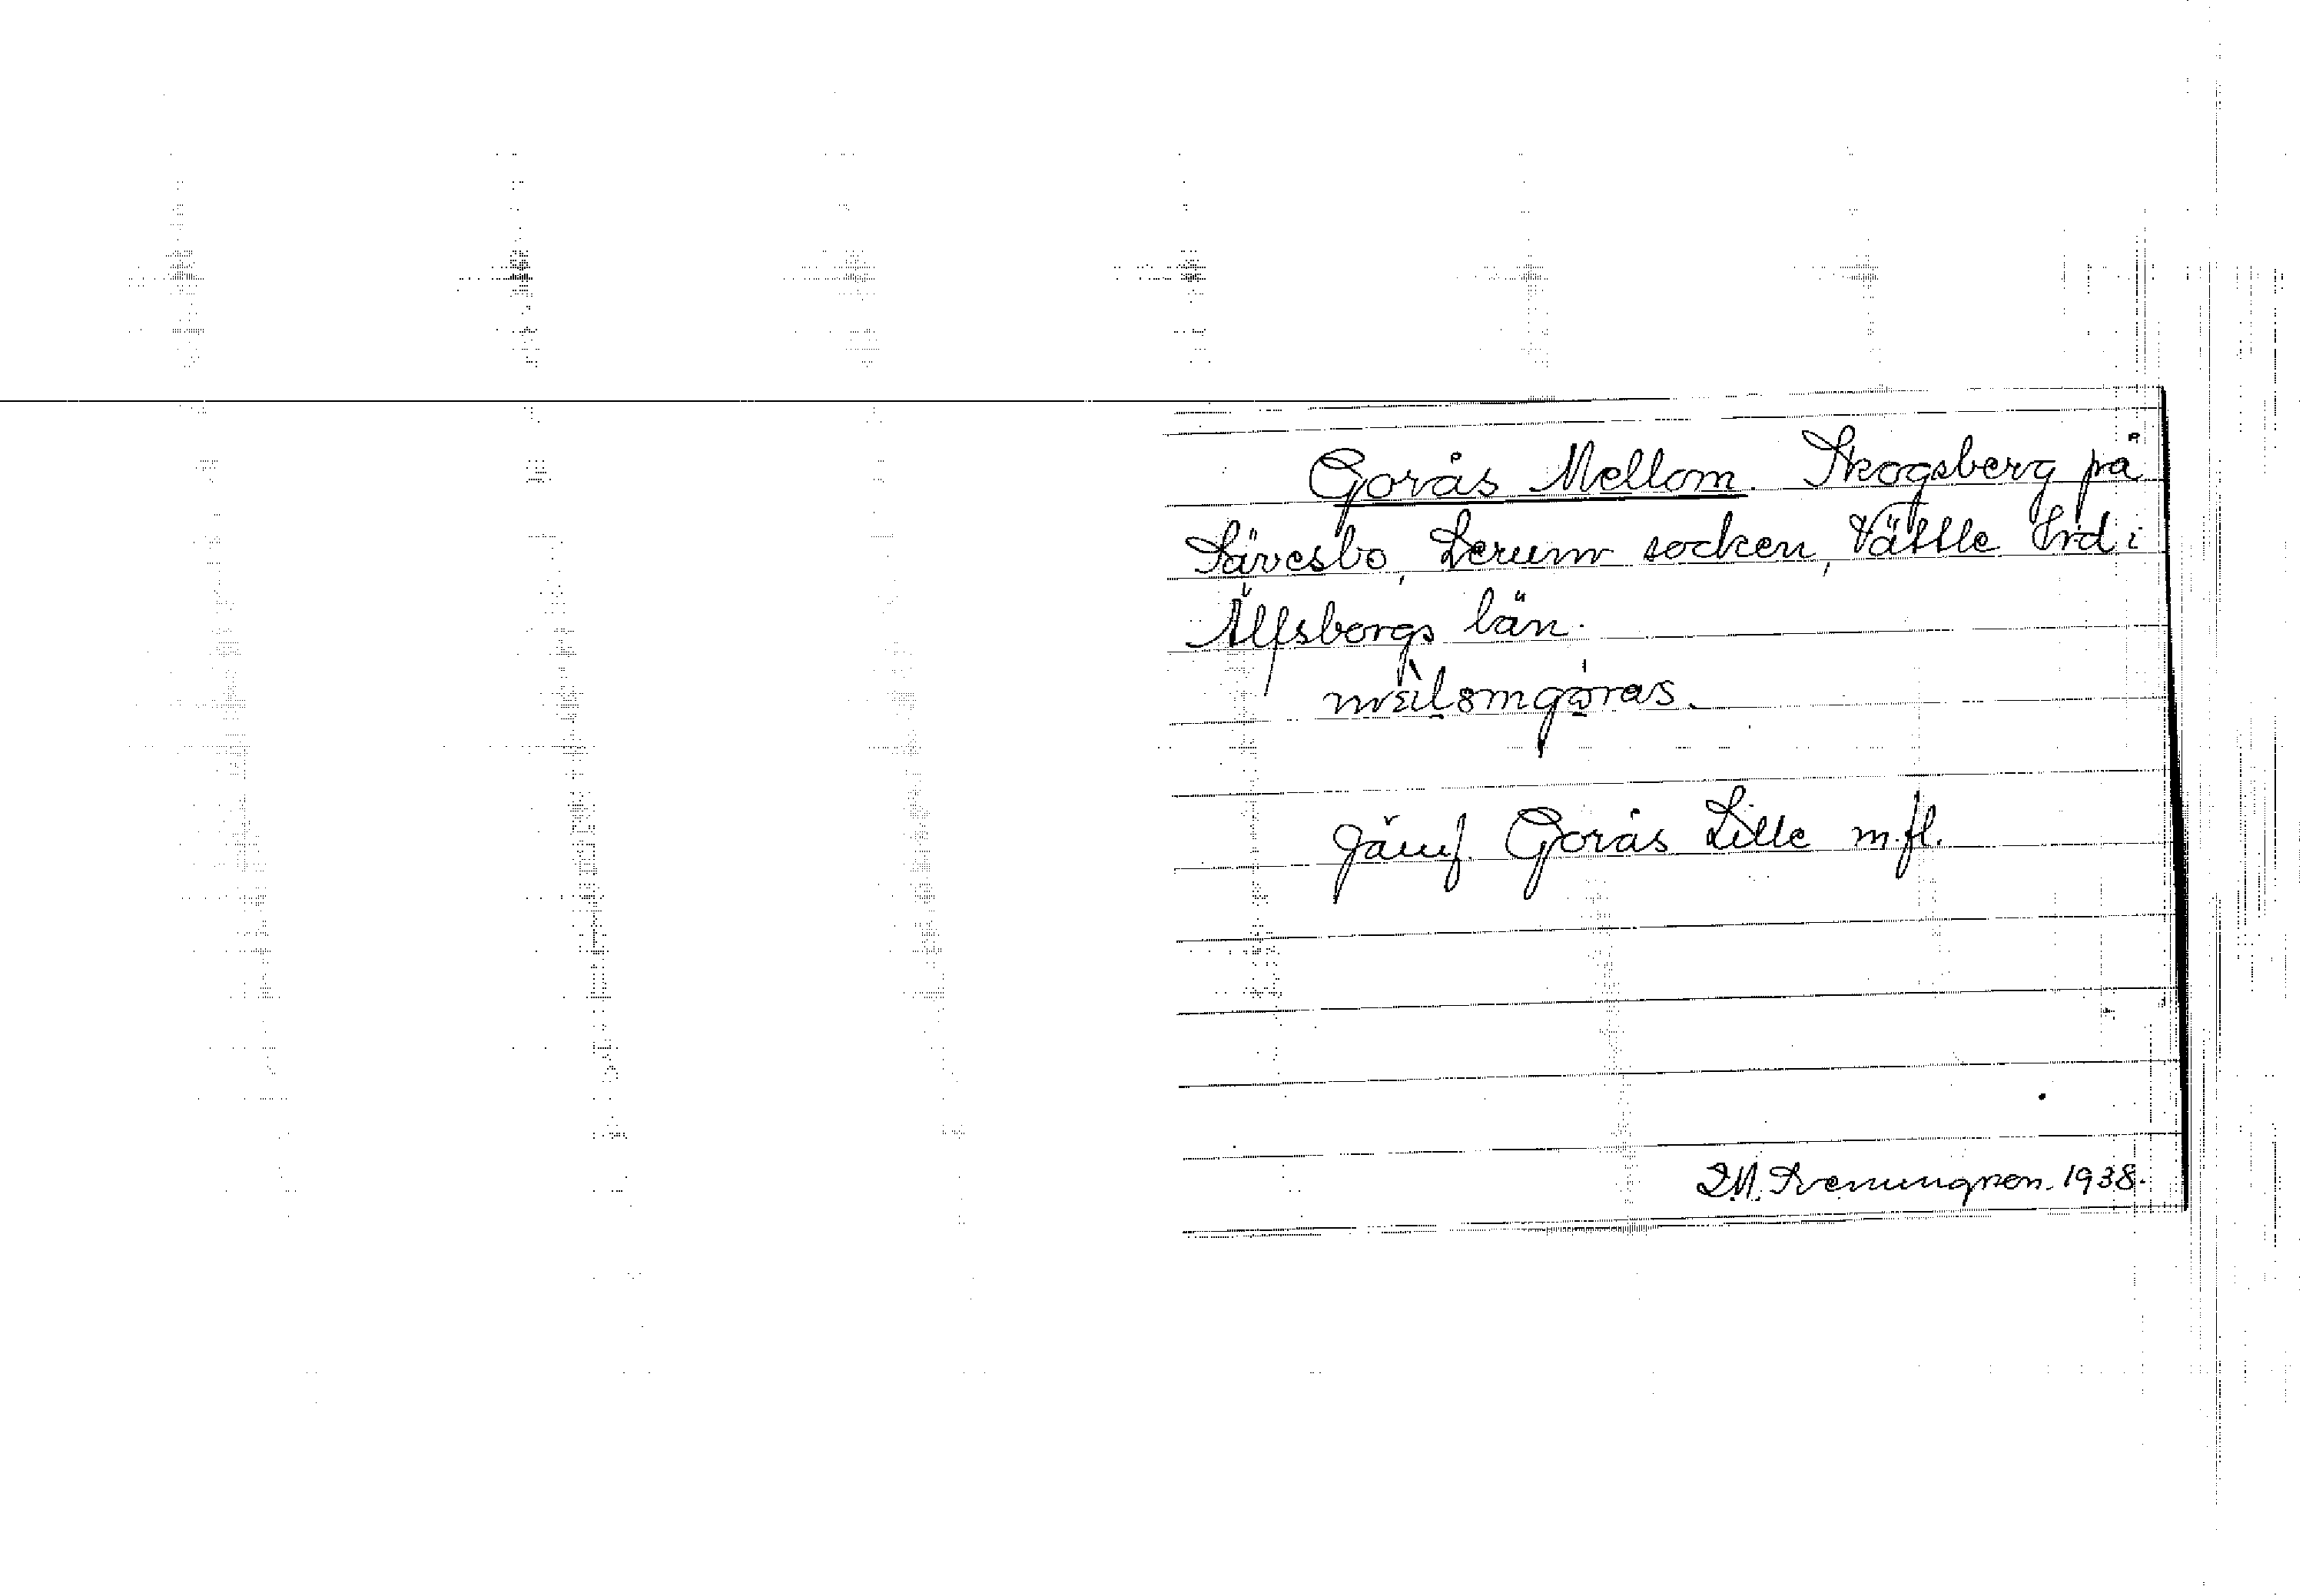 Gorås Mellom. Skogsberg på
Sävesbo, Lerum socken, Vättle hrd i
Älfsborgs län.
Jämf. Gorås Lille m.fl.
1938.